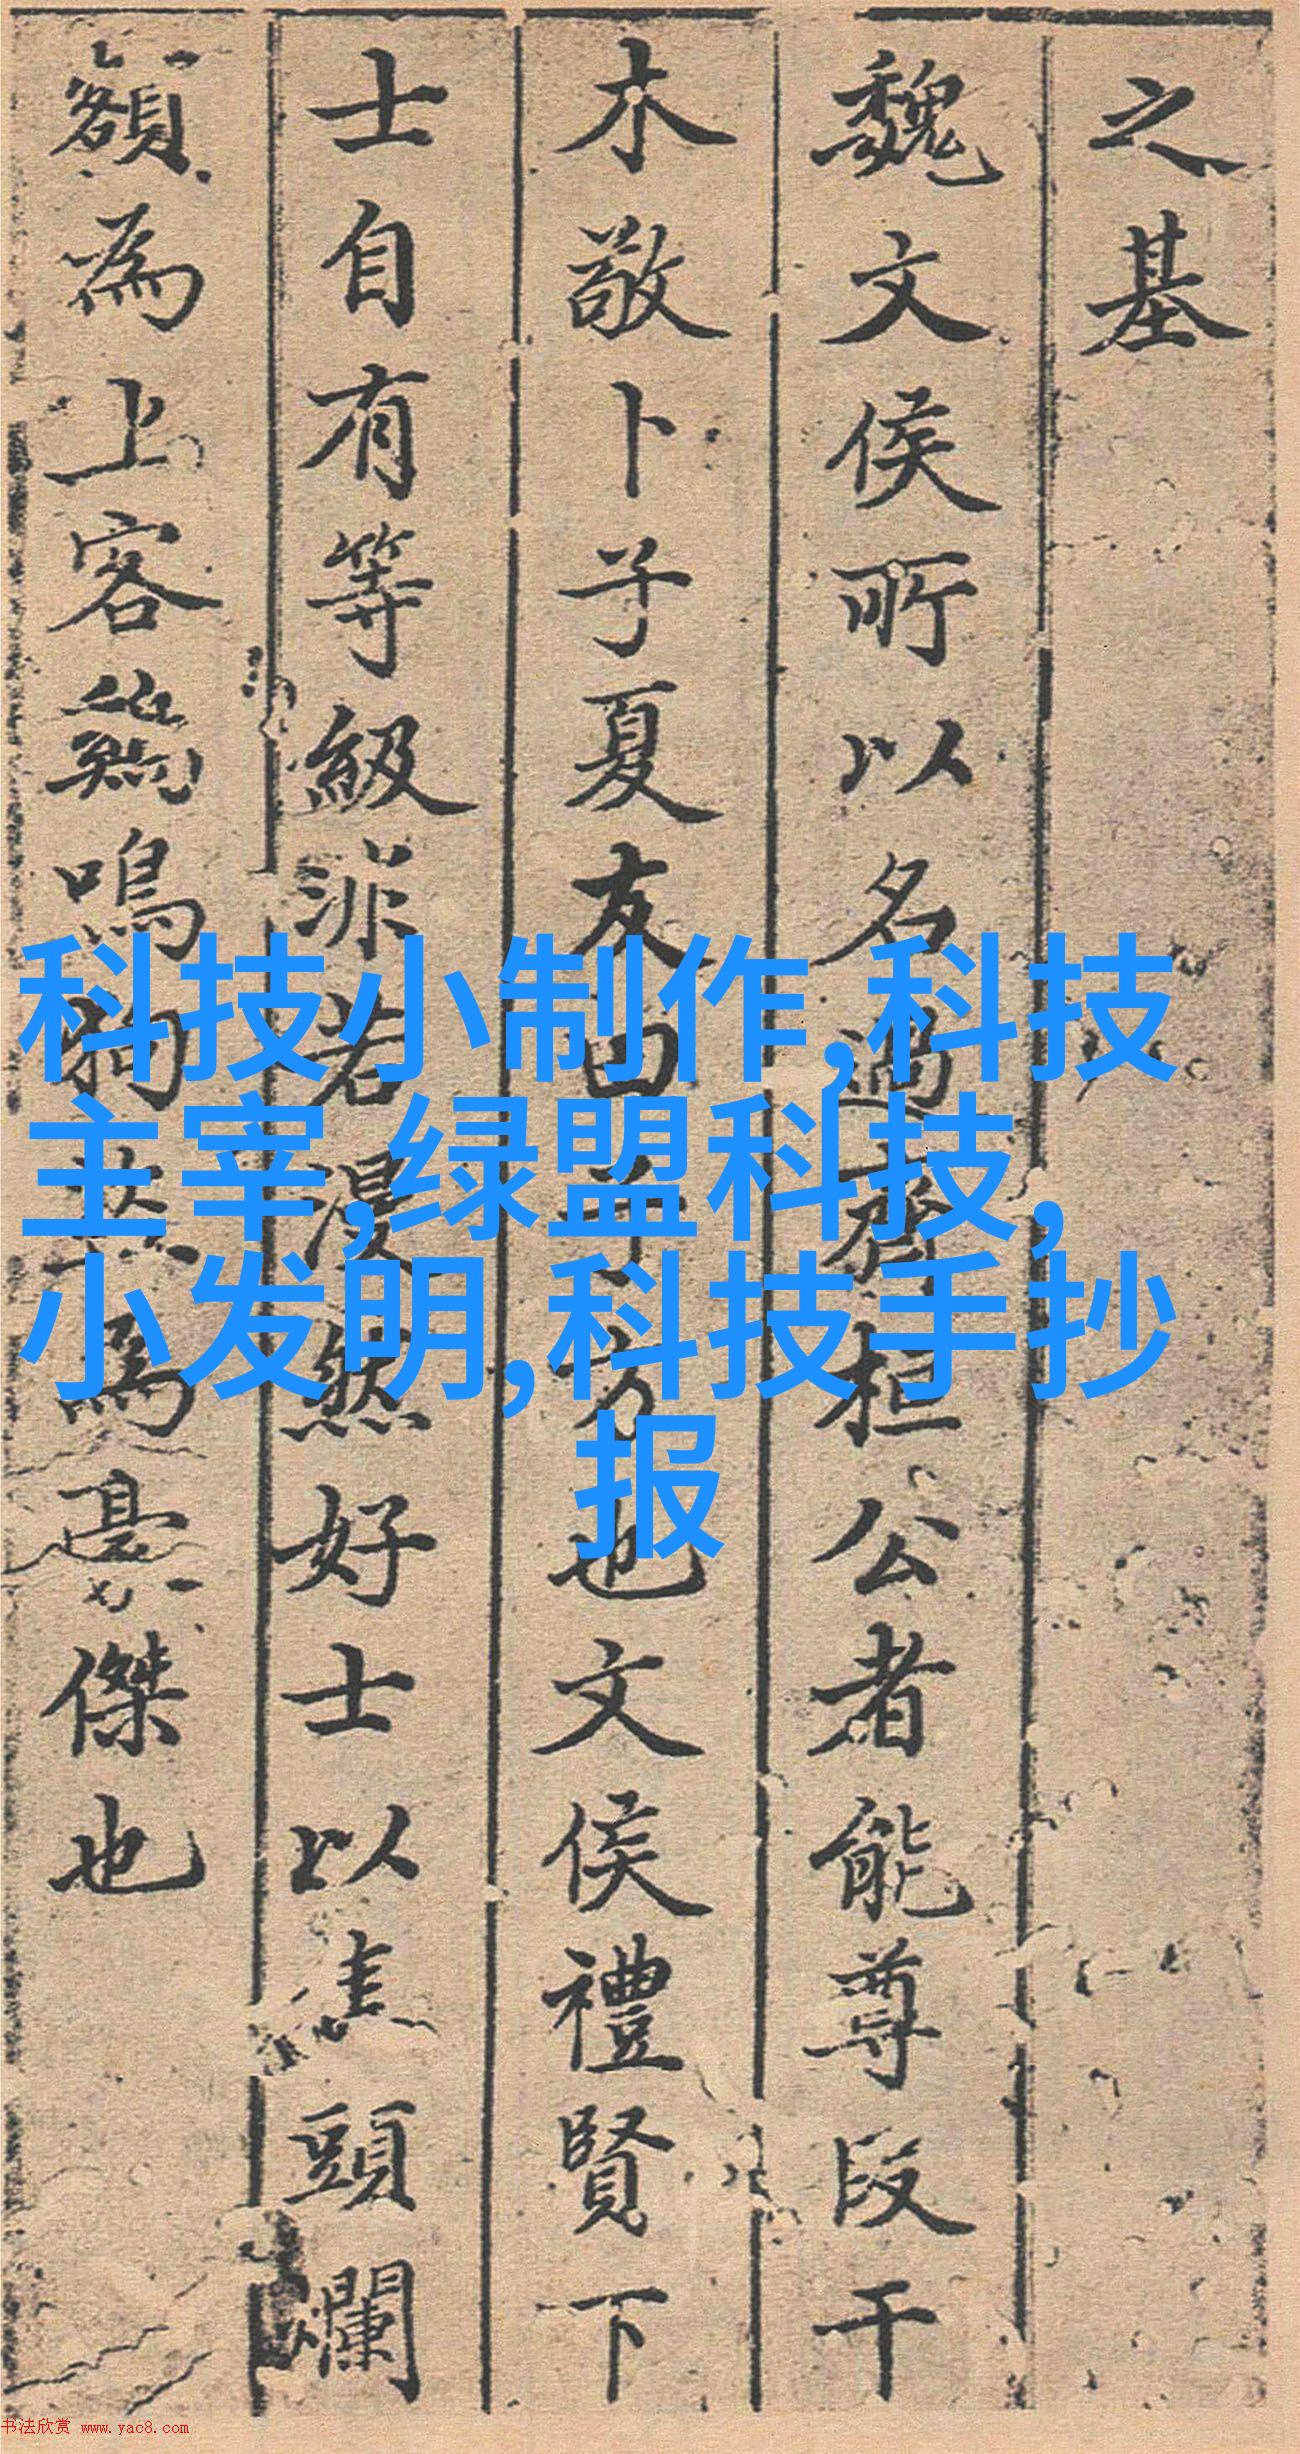 之基
魏文侯所以名過齊桓公者能尊段干
木敬卜子夏友田子方也文侯禮賢下
士自有等級非若漫然好士以焦頭爛
額為上客鷄鳴狗盜為豪傑也
科技小制作,科技
主宰,绿盟科技,
小发明,科技手抄
报
书法欣赏 www.yac8.com